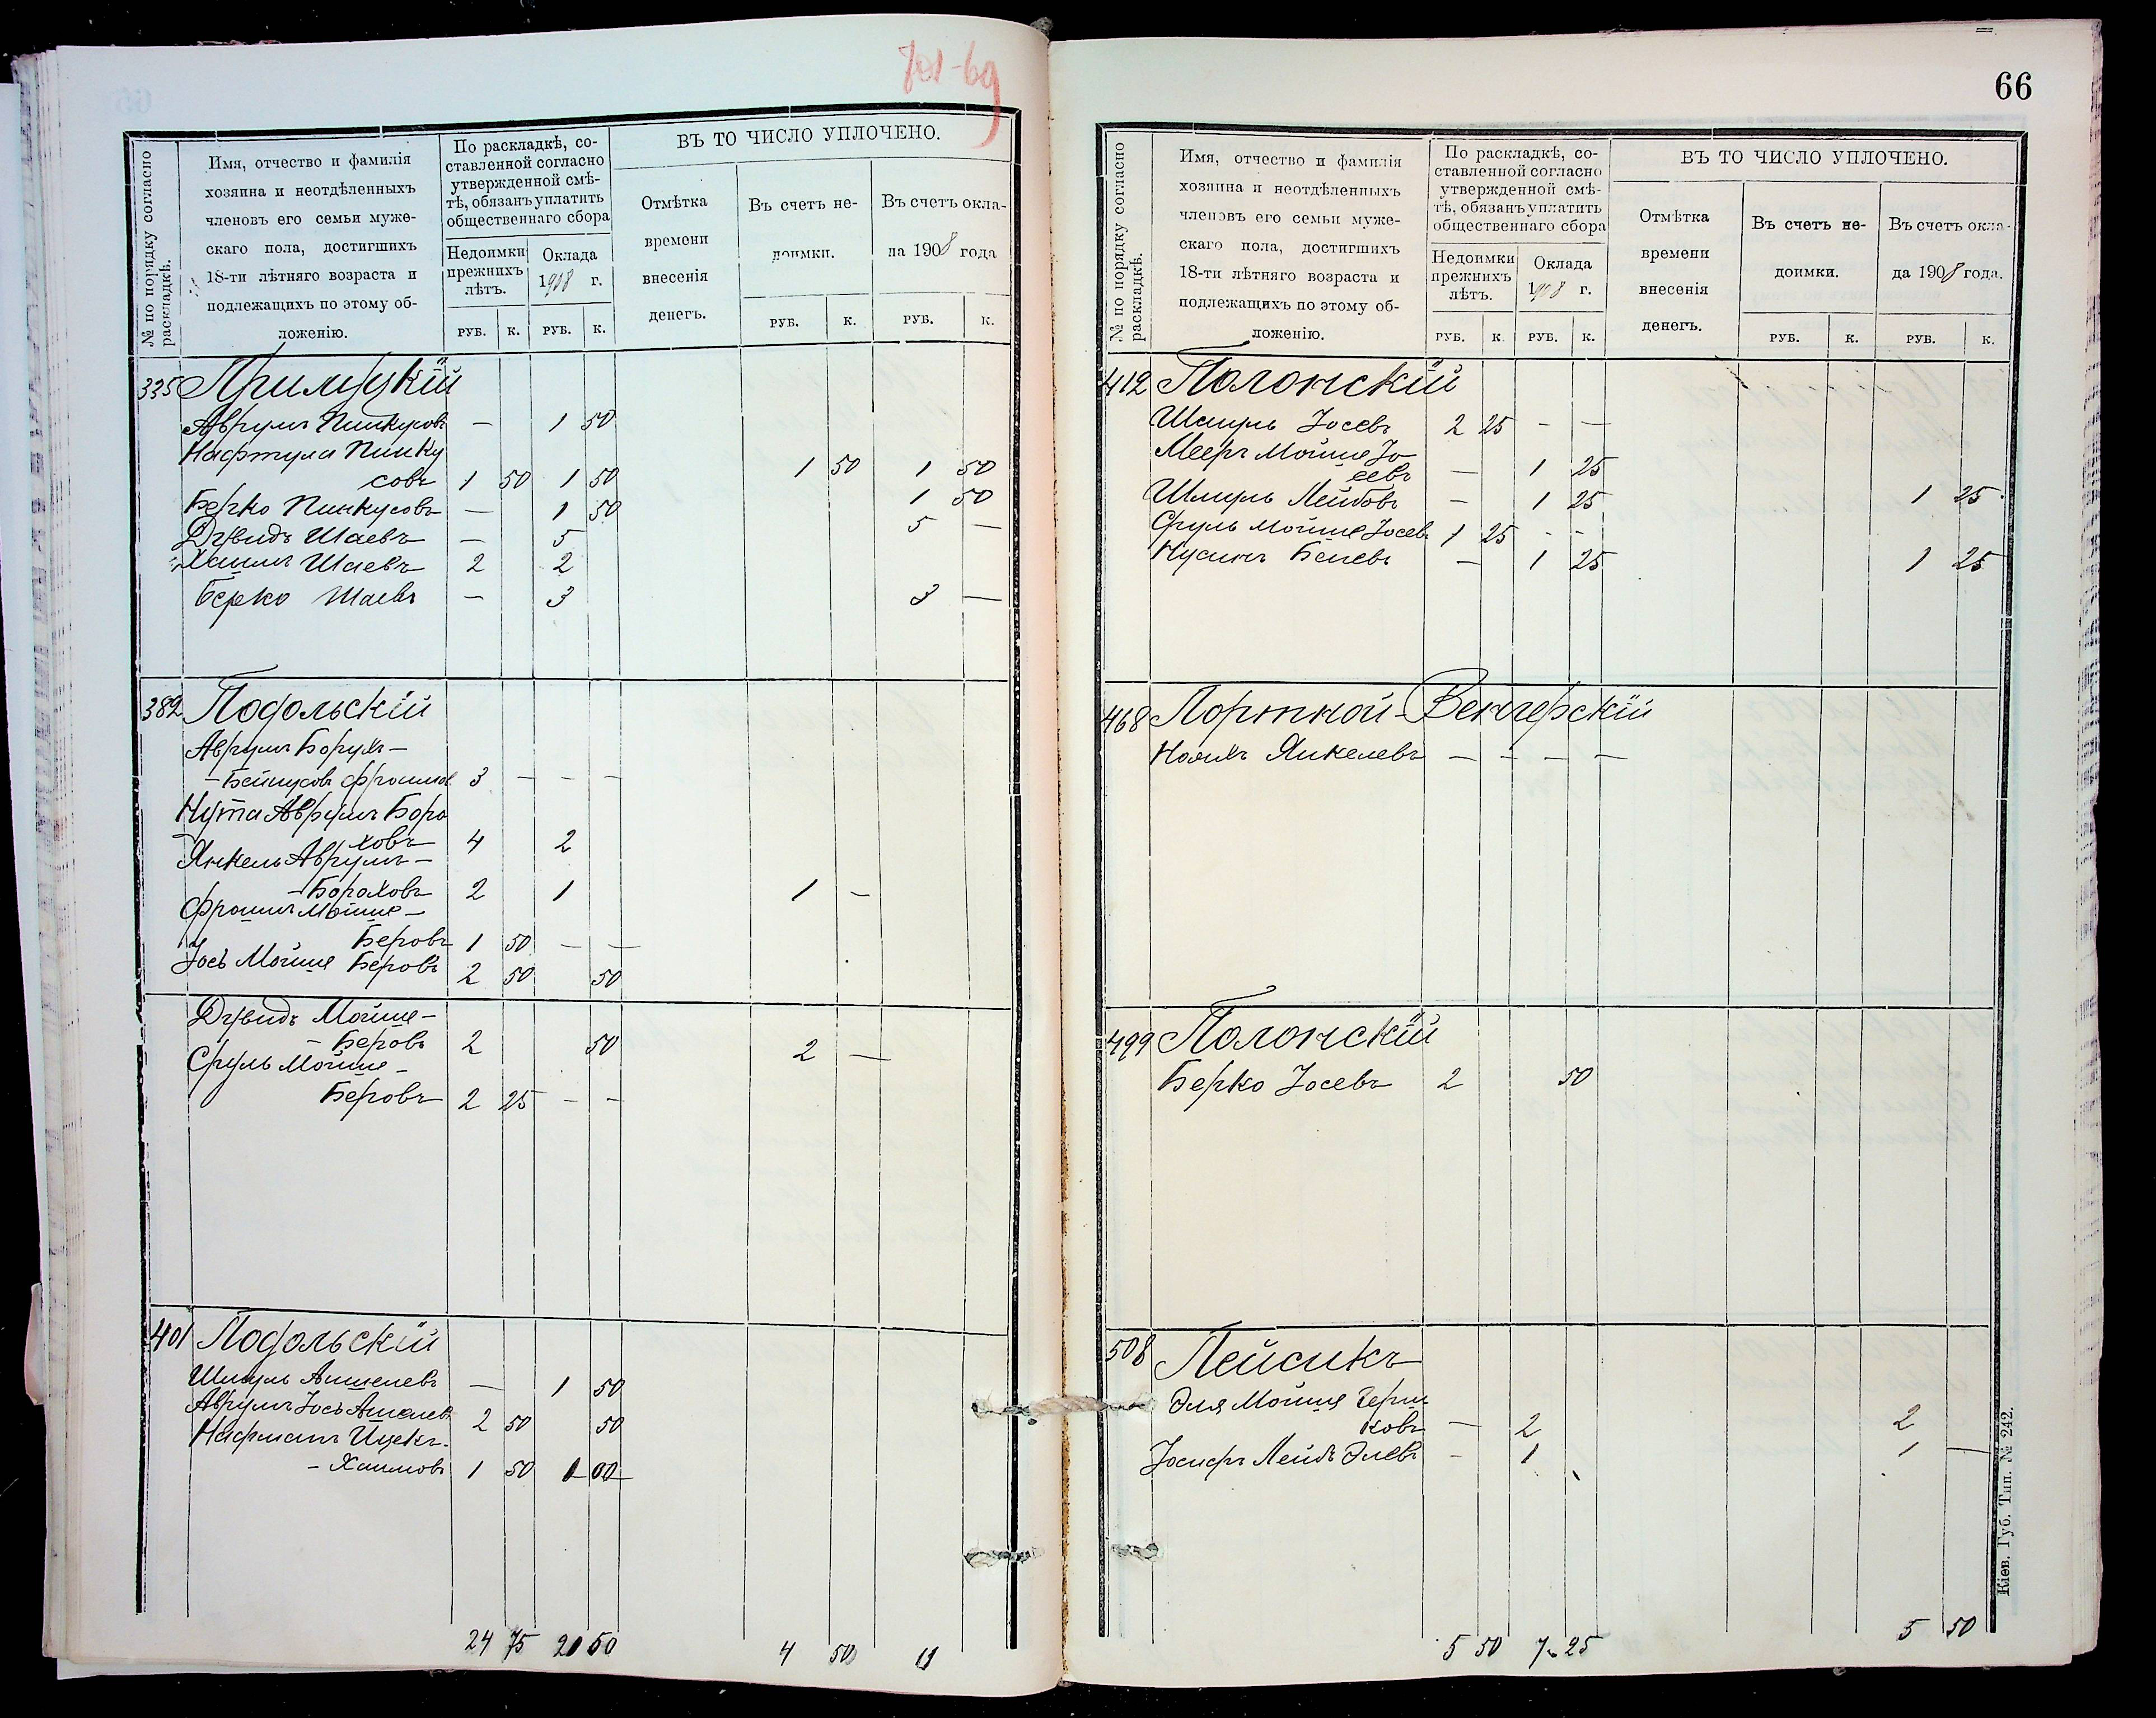 701-69
№ по порядку согласно раскладкѣ.
Имя, отчество и фамилія
хозяина и неотдѣленныхъ
членовъ его семьи муже-
скаго пола, достигшихъ
18-ти лѣтняго возраста и
подлежащихъ по этому об-
ложенію.
По раскладкѣ, со-
ставленной согласно
утвержденной смѣ-
тѣ, обязанъ уплатить
общественнаго сбора
Недоимки
прежнихъ
лѣтъ.
Оклада
1908 г.
РУБ. К. РУБ. К.
ВЪ ТО ЧИСЛО УПЛОЧЕНО.
Отмѣтка
времени
внесенія
денегъ.
Въ счетъ не-
доимки.
Въ счетъ окла-
да 1908 года
РУБ. К. РУБ. К.
335 Прилуцкій
Аврумъ Пинкусовъ — 1 50
Нафтула Пинку
совъ 1 50 1 50 1 50 1 50
Берко Пинкусовъ — 1 50 1 50
Дувидъ Шаевъ — 5 5 —
Хаимъ Шаевъ 2 2
Берко Шаевъ — 3 3 —
382 Подольскій
Аврумъ Борухъ —
— Бейнусовъ Фроимов 3 — — —
Нута Аврумъ Боро
ховъ 4 2
Янкель Аврумъ —
— Бороховъ 2 1 1 —
Фроимъ Мойше —
Беровъ 1 50 — —
Іось Мойше Беровъ 2 50 50
Дувидъ Мойше —
— Беровъ 2 50 2 —
Сруль Мойше —
Беровъ 2 25 — —
401 Подольскій
Шмуль Аншелевъ — 1 50
Аврумъ Іось Аншелев. 2 50 50
Нафтанъ Ицекъ-
— Хаимовъ 1 50 1 00
24 75 20 50 4 50 11
66
№ по порядку согласно раскладкѣ.
Имя, отчество и фамилія
хозяина и неотдѣленныхъ
членовъ его семьи муже-
скаго пола, достигшихъ
18-ти лѣтняго возраста и
подлежащихъ по этому об-
ложенію.
По раскладкѣ, со-
ставленной согласно
утвержденной смѣ-
тѣ, обязанъ уплатить
общественнаго сбора
Недоимки
прежнихъ
лѣтъ.
Оклада
1908 г.
РУБ. К. РУБ. К.
ВЪ ТО ЧИСЛО УПЛОЧЕНО.
Отмѣтка
времени
внесенія
денегъ.
Въ счетъ не-
доимки.
Въ счетъ окла-
да 1908 года.
РУБ. К. РУБ. К.
412 Полонскій
Шмуль Іосевъ 2 25 — —
Мееръ Мойше Іо
севъ — 1 25
Шмуль Лейбовъ — 1 25 1 25
Сруль Мойше Іосев. 1 25 - -
Нусинъ Беневъ — 1 25 1 25
468 Портной-Венгерскій
Ноахъ Янкелевъ — — — —
499 Полонскій
Берко Іосевъ 2 50
508 Пейсикъ
Эля Мойше Герш
ковъ — 2 2
Іосифъ Лейбъ Элевъ - 1 1 —
5 50 7 25 5 50
Кіев. Губ. Тип. № 242.